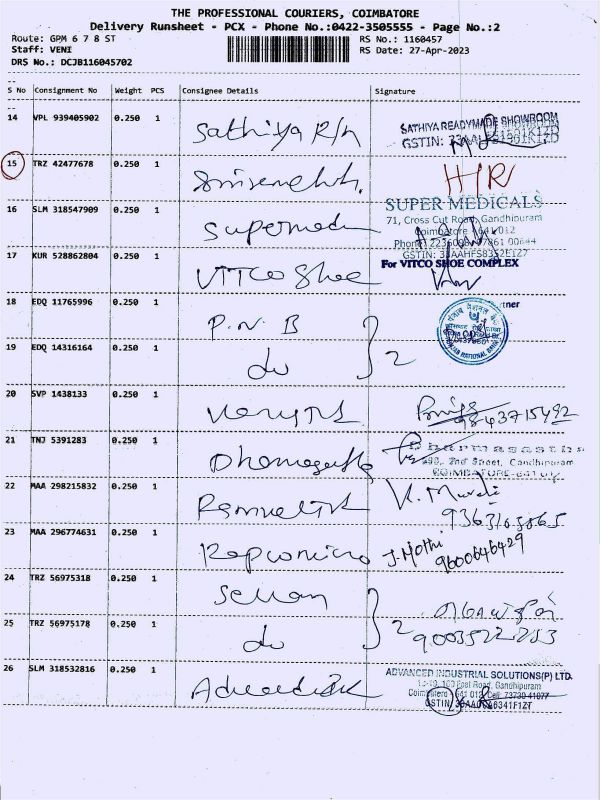 THE PROFESSIONAL COURIERS, COIMBATORE
Delivery Runsheet - PCX - Phone No.:0422-3505555 - Page No.:2
Route: GPM 6 7 8 ST
RS No.: 1160457
Staff: VENI
RS Date: 27-Apr-2023
DRS No.: DCJB116045702
S No Consignment No Weight PCS Consignee Details Signature
14 VPL 939405902 0.250 1 Sathiya R/n
SATHIYA READYMADE SHOWROOM
GSTIN:
15 TRZ 42477678 0.250 1
H/R
16 SLM 318547909 0.250 1 Supermedi
SUPER MEDICALS
71, Cross Cut Road, Gandhipuram
Coimbatore 641 012
Phone:
GSTIN: 33AAHFS8352E1Z7
17 KUR 528862804 0.250 1 VITCO Shoe
For VITCO SHOE COMPLEX
18 EDQ 11765996 0.250 1 P.N.B
PUNJAB NATIONAL BANK
19 EDQ 14316164 0.250 1 do 2
20 SVP 1438133 0.250 1
9843715492
21 TNJ 5391283 0.250 1
2nd Street, Gandhipuram
COIMBATORE-641 012
22 MAA 298215832 0.250 1
K. Murali
9363163865
23 MAA 296774631 0.250 1 Repco micro
J. Mothi
9600646429
24 TRZ 56975318 0.250 1 Selvam
25 TRZ 56975178 0.250 1 do 2
9003522253
26 SLM 318532816 0.250 1
ADVANCED INDUSTRIAL SOLUTIONS(P) LTD.
East Road, Gandhipuram
Coimbatore 641 012 Cell: 73730 41077
GSTIN: